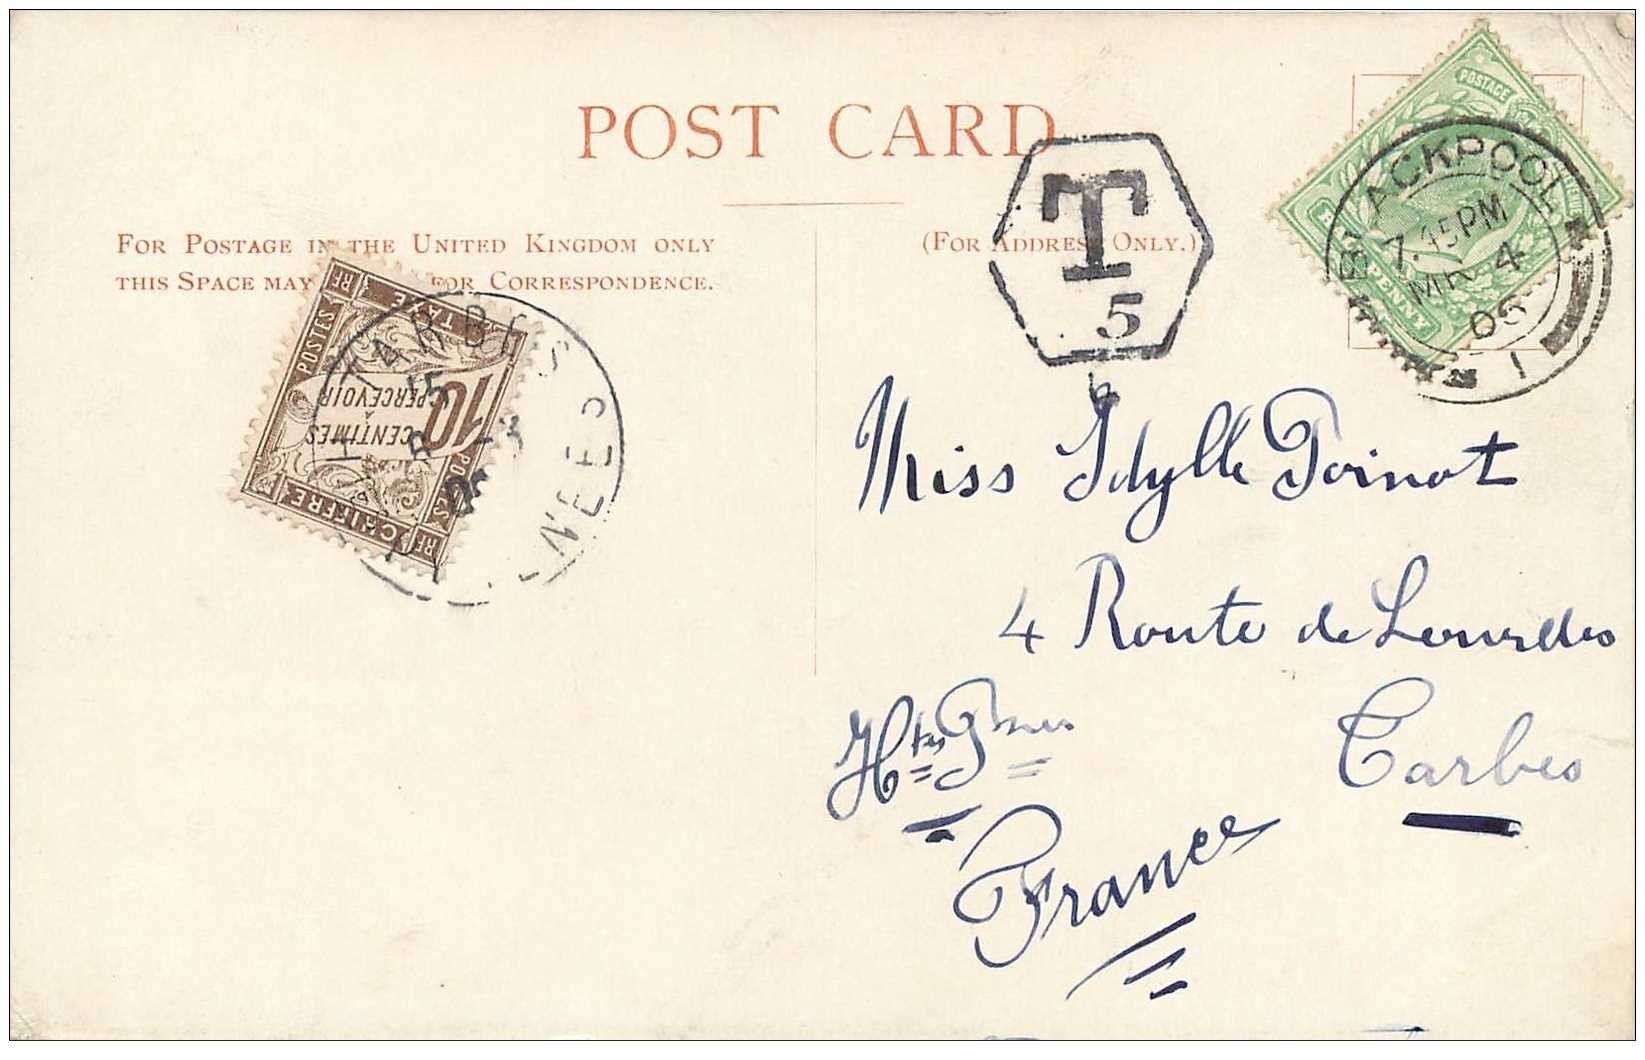 POST CARD
FOR POSTAGE IN THE UNITED KINGDOM ONLY
THIS SPACE MAY FOR CORRESPONDENCE.
(FOR ADDRESS ONLY.)
T
5
POSTAGE
PENNY
BLACKPOOL
7.45PM
MR 4
06
1
RF
TAXE
POSTES
10
CENTIMES
À
PERCEVOIR
CHIFFRE
RF
TARBES
Miss Idylle Toinot
4 Route de Lourdes
Tarbes
Htes Pnées
France